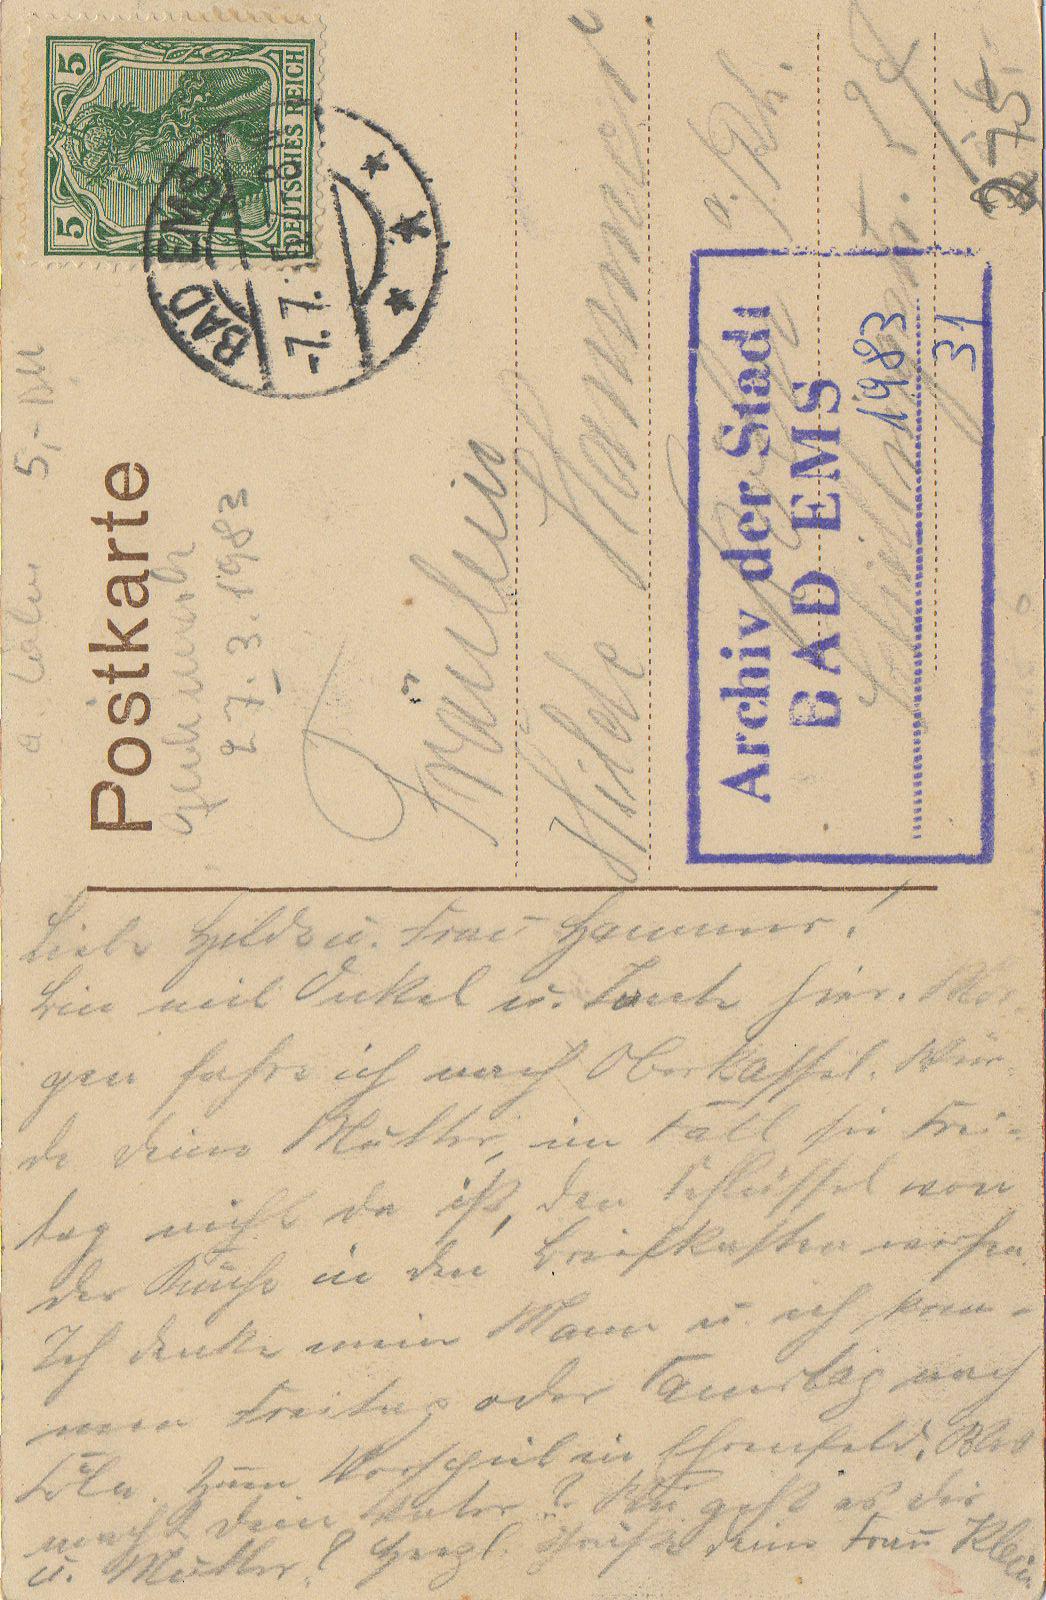 Postkarte
5
5
DEUTSCHES REICH
BAD EMS
-7.7.
5,- DM
27.3.1983
Fräulein
Hilde Hammer
a./Rh.
Archiv der Stadt
BAD EMS
1983
31
Liebe Hilde u. Frau Hammer!
Bin mit Onkel u. Tante hier. Mor-
gen fahre ich nach Oberkassel. Wür-
de deine Mutter, im Fall sie Frei-
tag nicht da ist, den Schlüssel von
der Küche in den Briefkasten werfen.
Ich denke mein Mann u. ich kom-
men Freitag oder Samstag nach
Cöln. Zum Vorschein in Ehrenfeld. Was
macht dein Vater? Wie geht es dir
u. Mutter? Herzl. Grüße deine Frau Klein